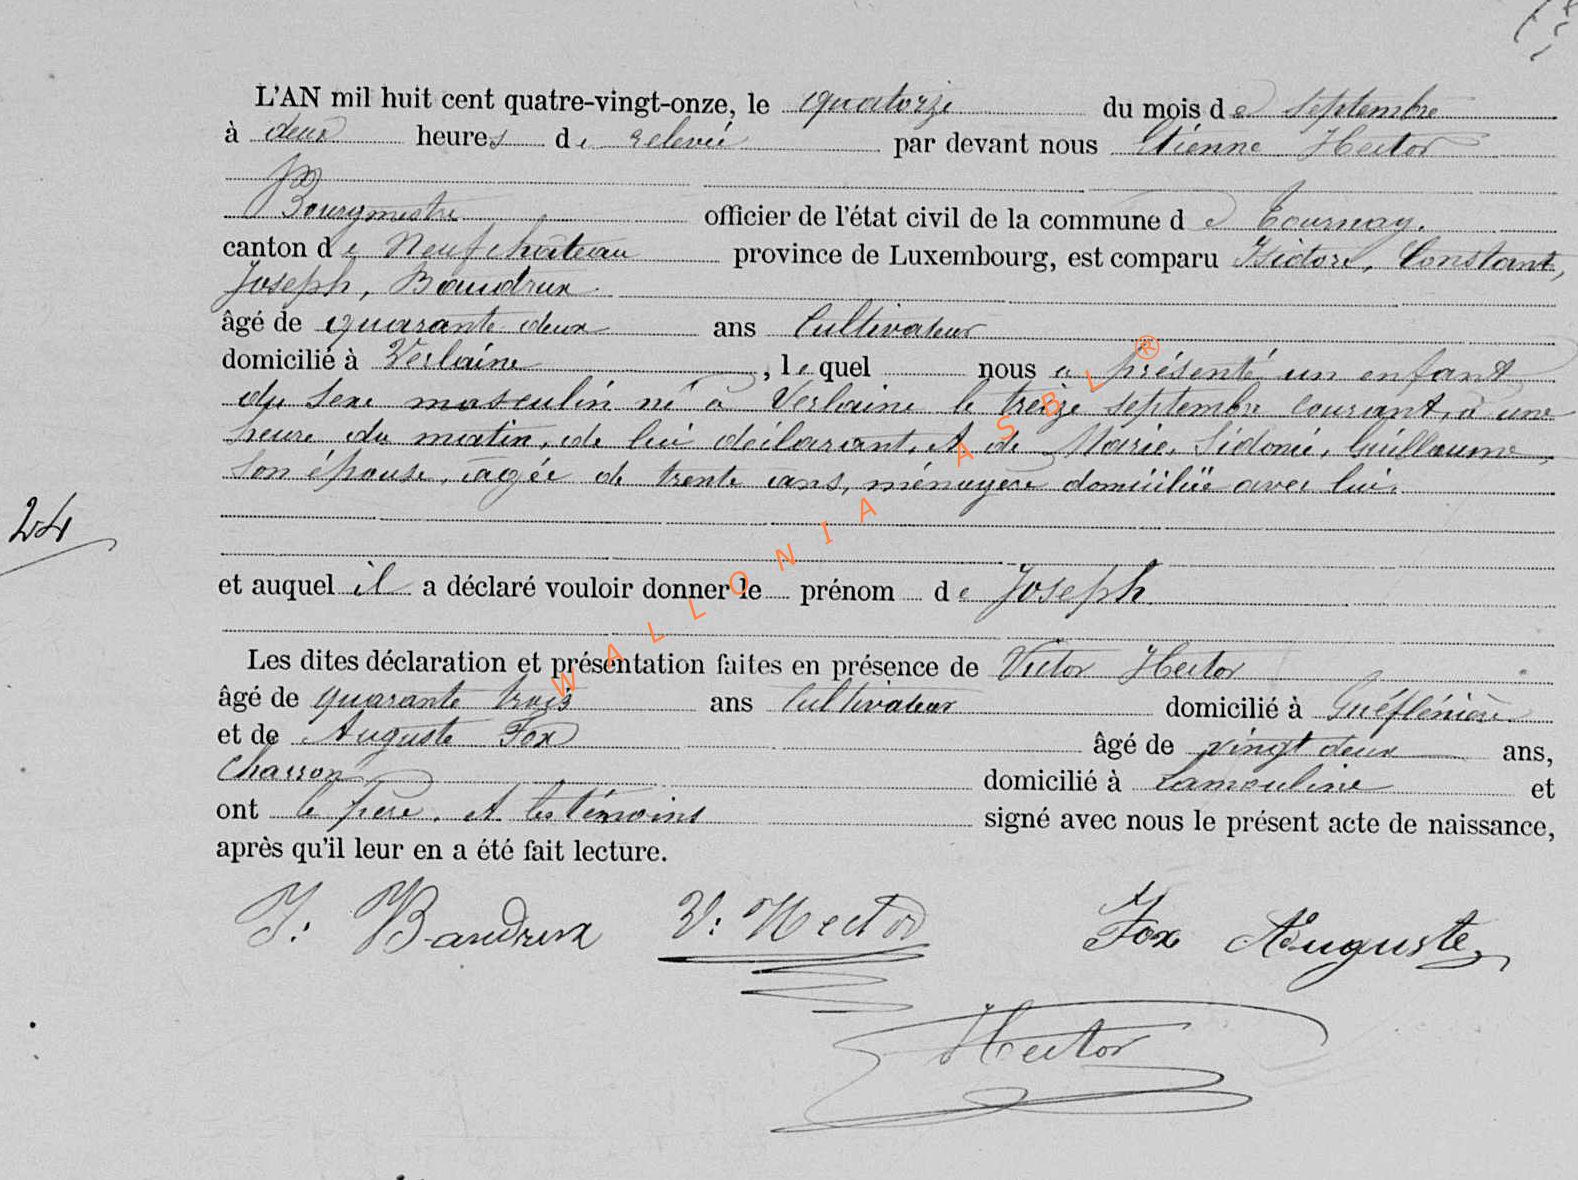 L'AN mil huit cent quatre-vingt-onze, le quatorze du mois de septembre
à deux heures de relevée par devant nous Etienne Hector
Bourgmestre officier de l'état civil de la commune de Tournay.
canton de Neufchâteau province de Luxembourg, est comparu Isidore, Constant,
Joseph, Baudrux.
âgé de quarante deux ans Cultivateur
domicilié à Verlaine, lequel nous a présenté un enfant
du sexe masculin né à Verlaine le treize septembre courant, à une
heure du matin, de lui déclarant, et de Marie, Sidonie, Guillaume,
son épouse, âgée de trente ans, ménagère domiciliée avec lui.
24
et auquel il a déclaré vouloir donner le prénom de Joseph
Les dites déclaration et présentation faites en présence de Victor Hector
âgé de quarante trois ans Cultivateur domicilié à
et de Auguste Fox âgé de vingt deux ans,
Charron domicilié à Lamouline et
ont le père, et les témoins signé avec nous le présent acte de naissance,
après qu'il leur en a été fait lecture.
J. Baudrux V. Hector Fox Auguste
Hector
WALLONIA ASBL®